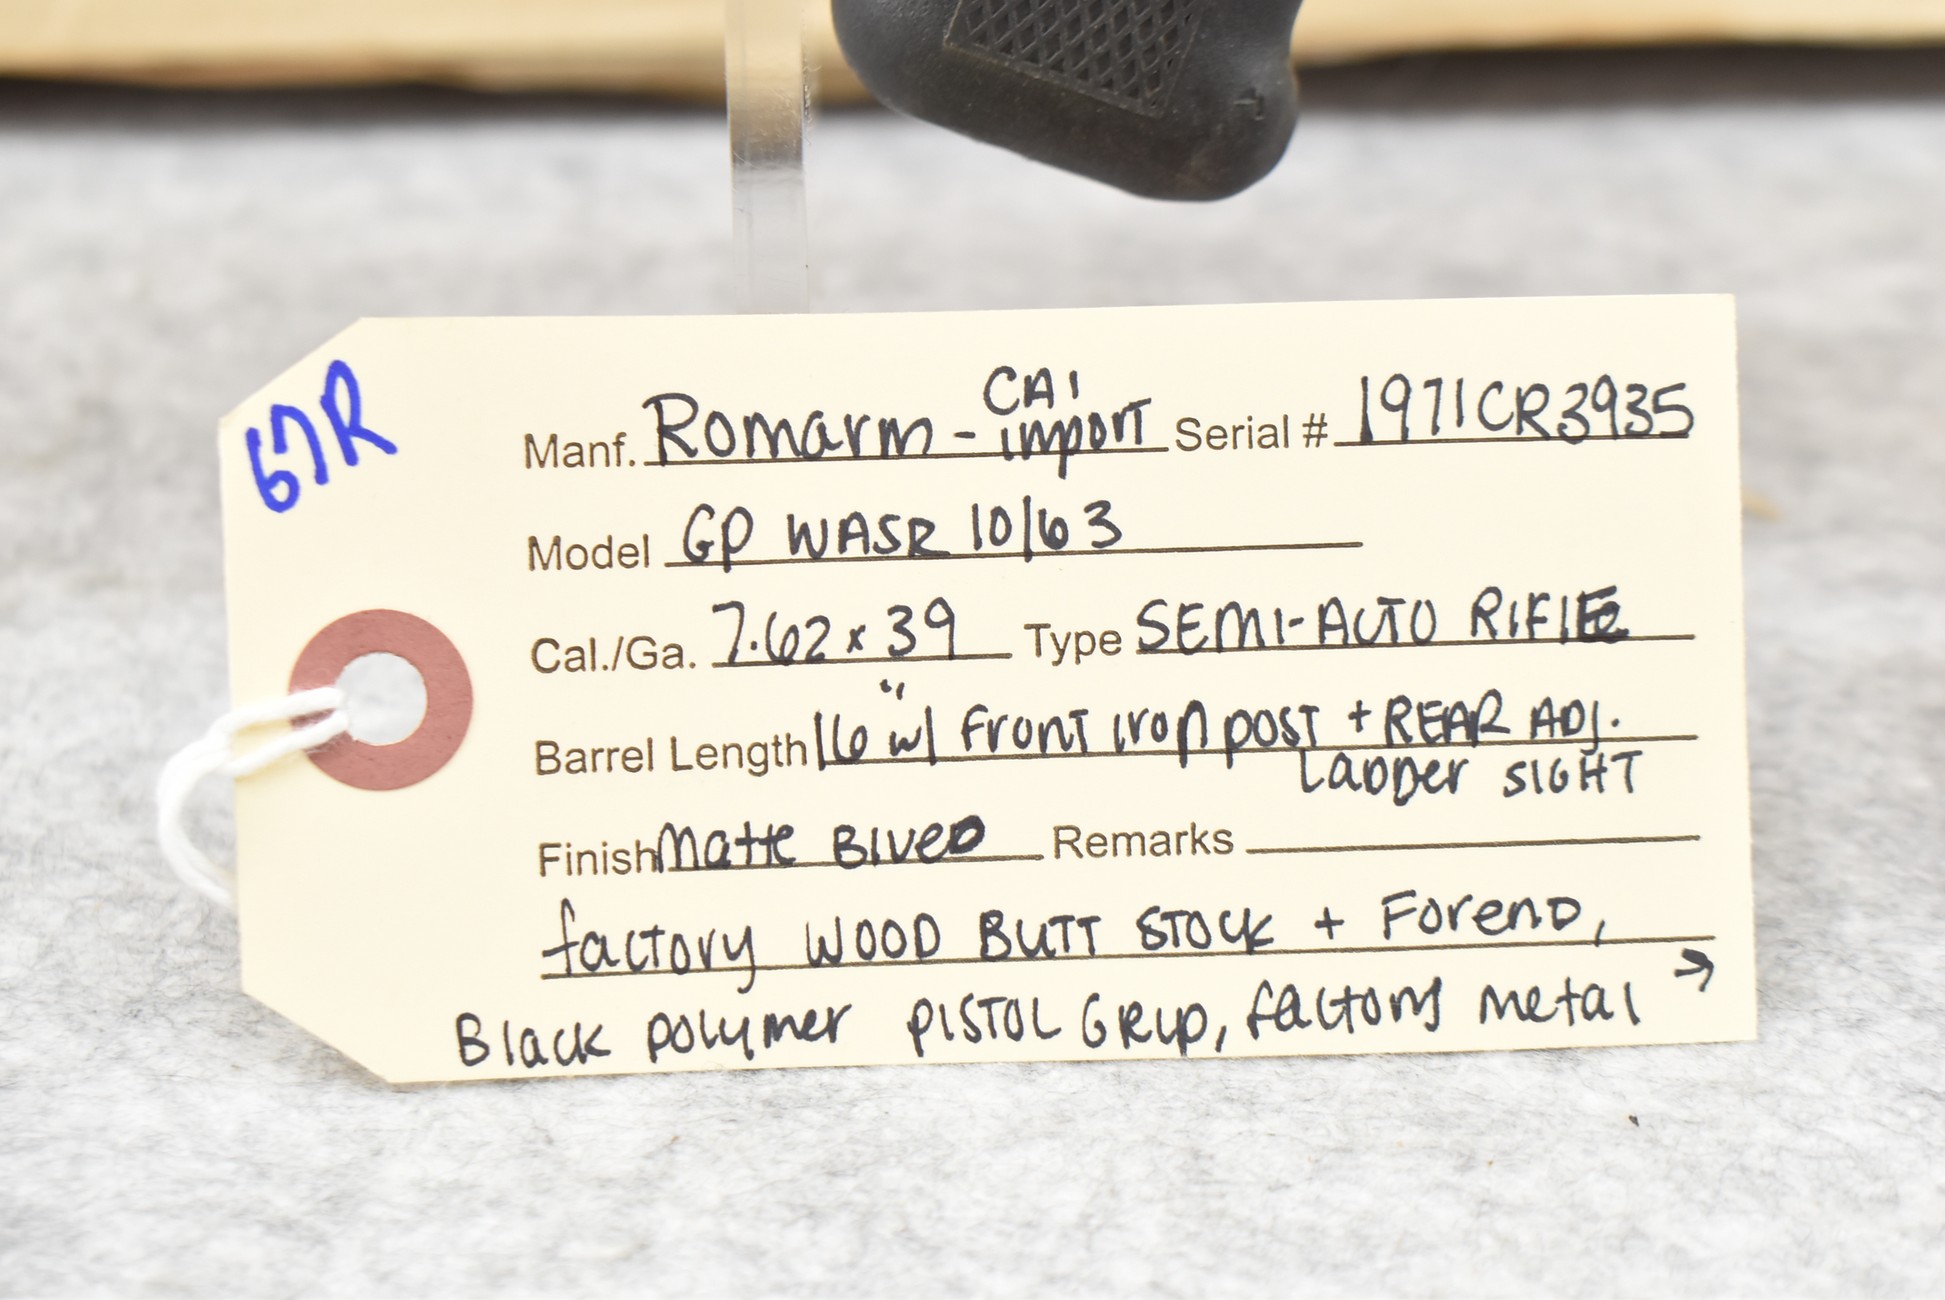 67R
Manf. Romarm - CAI import Serial # 1971CR3935
Model GP WASR 10/63
Cal./Ga. 7.62x39 Type SEMI-AUTO RIFLE
Barrel Length 16" w/ Front Iron post + REAR ADJ.
LADDER SIGHT
Finish Matte Blued Remarks
factory WOOD BUTT STOCK + Forend,
Black polymer PISTOL GRIP, factory metal →